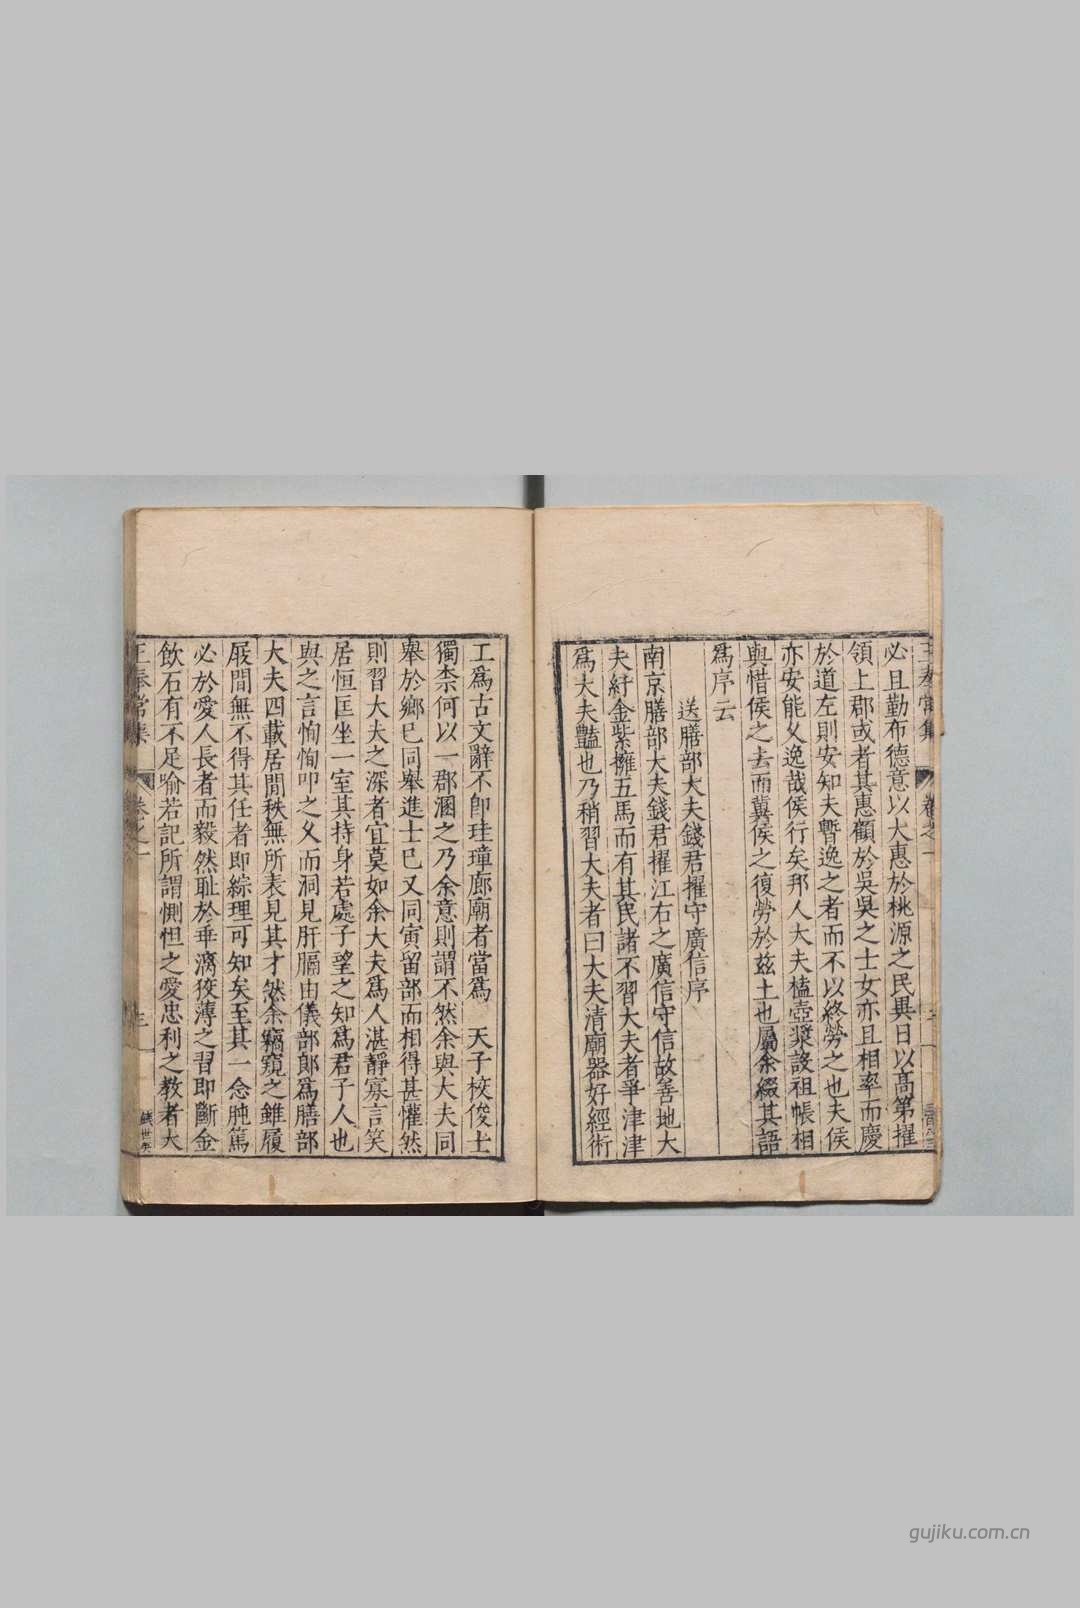 必且勤布德意以大惠於桃源之民異日以髙第擢
領上郡或者其惠顧於吳吳之士女亦且相率而慶
於道左則安知夫暫逸之者而不以終勞之也夫侯
亦安能乆逸哉侯行矣邦人大夫榼壺漿設祖帳相
與惜侯之去而冀侯之復勞於兹土也屬余綴其語
爲序云
送膳部大夫錢君擢守廣信序
南京膳部大夫錢君擢江右之廣信守信故善地大
夫紆金紫擁五馬而有其民諸不習大夫者爭津津
爲大夫豔也乃稍習大夫者曰大夫清廟器好經術
工爲古文辭不卽珪璋廊廟者當爲 天子校俊士
獨柰何以一郡溷之乃余意則謂不然余與大夫同
舉於鄉已同舉進士已又同寅留部而相得甚懽然
則習大夫之深者宜莫如余大夫爲人湛靜寡言笑
居恒匡坐一室其持身若處子望之知爲君子人也
與之言恂恂叩之乆而洞見肝膈由儀部郎爲膳部
大夫四載居閒秩無所表見其才然余竊窺之錐履
屐間無不得其任者即綜理可知矣至其一念肫篤
必於愛人長者而毅然恥於乖漓狡薄之習即斷金
飲石有不足喻若記所謂惻怛之愛忠利之教者大
王奉常集 卷之一 三
gujiku.com.cn